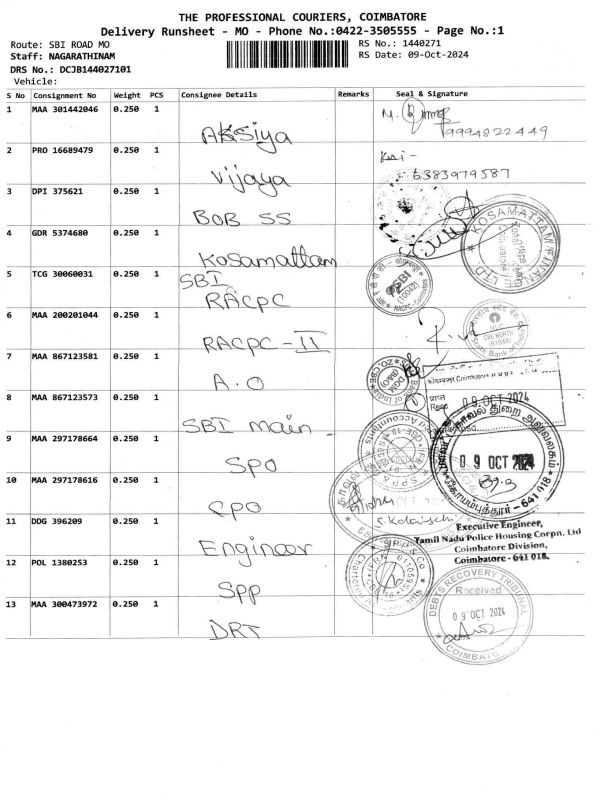 THE PROFESSIONAL COURIERS, COIMBATORE
Delivery Runsheet - MO - Phone No.:0422-3505555 - Page No.:1
Route: SBI ROAD MO
RS No.: 1440271
Staff: NAGARATHINAM
RS Date: 09-Oct-2024
DRS No.: DCJB144027101
Vehicle:
S No Consignment No Weight PCS Consignee Details Remarks Seal & Signature
1 MAA 301442046 0.250 1 AKSiya M.
9994822449
2 PRO 16689479 0.250 1 Vijaya
6383979587
3 DPI 375621 0.250 1 BOB SS
4 GDR 5374680 0.250 1 Kosamattam
KOSAMATTAM FINAN
LTD
5 TCG 30060031 0.250 1 SBI
RACPC
SBI
(10042)
6 MAA 200201044 0.250 1 RACPC - II
State Bank of India
7 MAA 867123581 0.250 1 A.O
Coimbatore
09 OCT 2024
8 MAA 867123573 0.250 1 SBI main
காவல் துறை அலுவலகம்
09 OCT 2024
கோயம்புத்தூர் - 641 018
9 MAA 297178664 0.250 1 SPO
10 MAA 297178616 0.250 1 CPO
11 DDG 396209 0.250 1 Engineer
Executive Engineer,
Tamil Nadu Police Housing Corpn. Ltd
Coimbatore Division,
Coimbatore - 641 018.
12 POL 1380253 0.250 1 SPP
13 MAA 300473972 0.250 1 DRT
DEBTS RECOVERY TRIBUNAL
Received
09 OCT 2024
COIMBATO